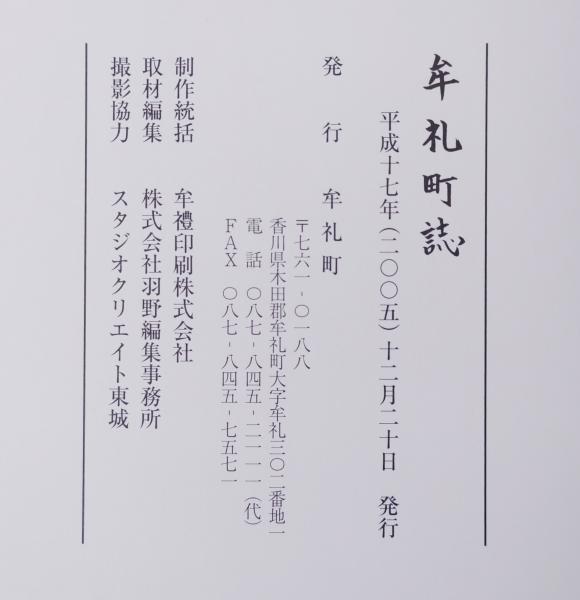 牟礼町誌
平成十七年(二〇〇五)十二月二十日 発行
発行 牟礼町
〒七六一-〇一八八
香川県木田郡牟礼町大字牟礼三〇二番地一
電話 〇八七-八四五-二一一一(代)
FAX 〇八七-八四五-七五七一
制作統括 牟禮印刷株式会社
取材編集 株式会社羽野編集事務所
撮影協力 スタジオクリエイト東城